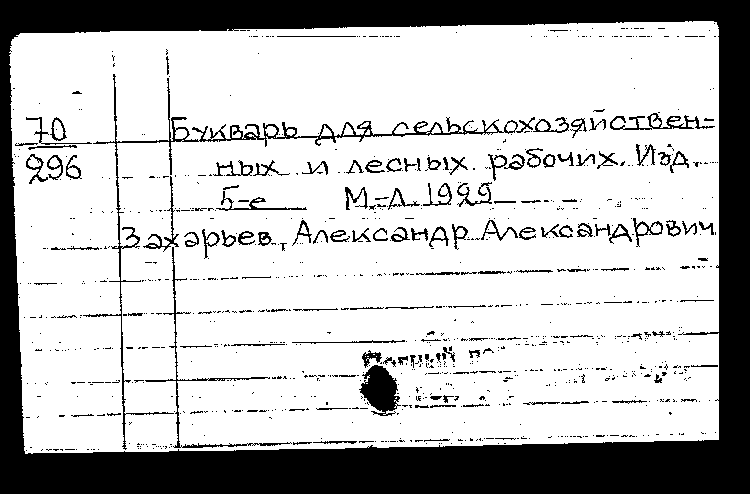 70
296
Букварь для сельскохозяйствен=
ных и лесных рабочих. Изд.
5-е М.-Л. 1929
Захарьев, Александр Александрович